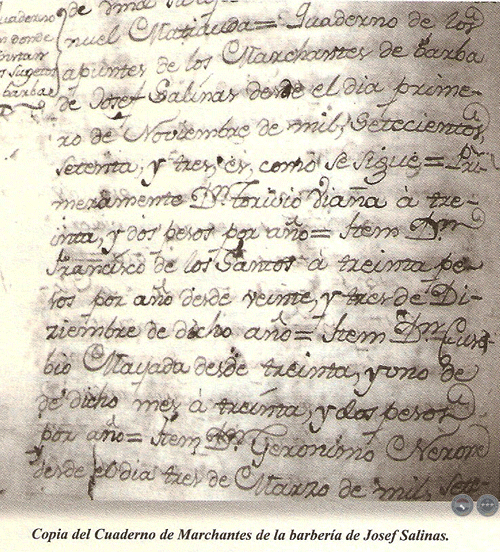 uaderno
en donde
constan
s Sugetos
barbas
nuel Matiauda = Quaderno de los
apuntes de los Marchantes de barba
de Josef Salinas desde el dia prime-
ro de Noviembre de mil, Setecientos,
setenta, y tres, es, como se sigue = Pri-
meramente Dn. Torivio Diaña à tre-
inta, y dos pesos por año = Item Dn.
Francisco de los Santos à treinta pe-
sos por año desde veinte, y tres de Di-
ziembre de dicho año = Item Dn. Euse-
bio Mayada desde treinta, y uno de
de dicho mes, à treinta, y dos pesos
por año = Item, Dn. Geronimo Nerone
desde el dia tres de Marzo de mil, Sete-
Copia del Cuaderno de Marchantes de la barbería de Josef Salinas.